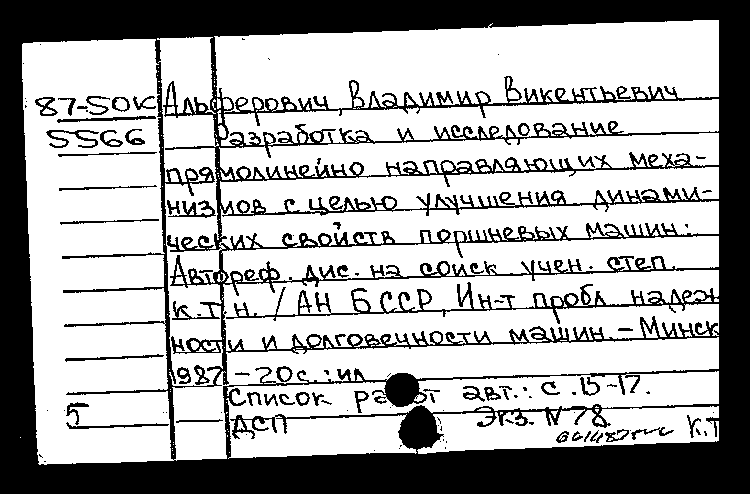 87-50К Альферович, Владимир Викентьевич
5566 Разработка и исследование
прямолинейно направляющих меха-
низмов с целью улучшения динами-
ческих свойств поршневых машин:
Автореф. дис. на соиск учен. степ.
к.т.н. / АН БССР, Ин-т пробл надеж
ности и долговечности машин. – Минск
1987 – 20с.: ил
Список работ авт.: с. 15-17.
5 ДСП Экз. N 78.
К.Т